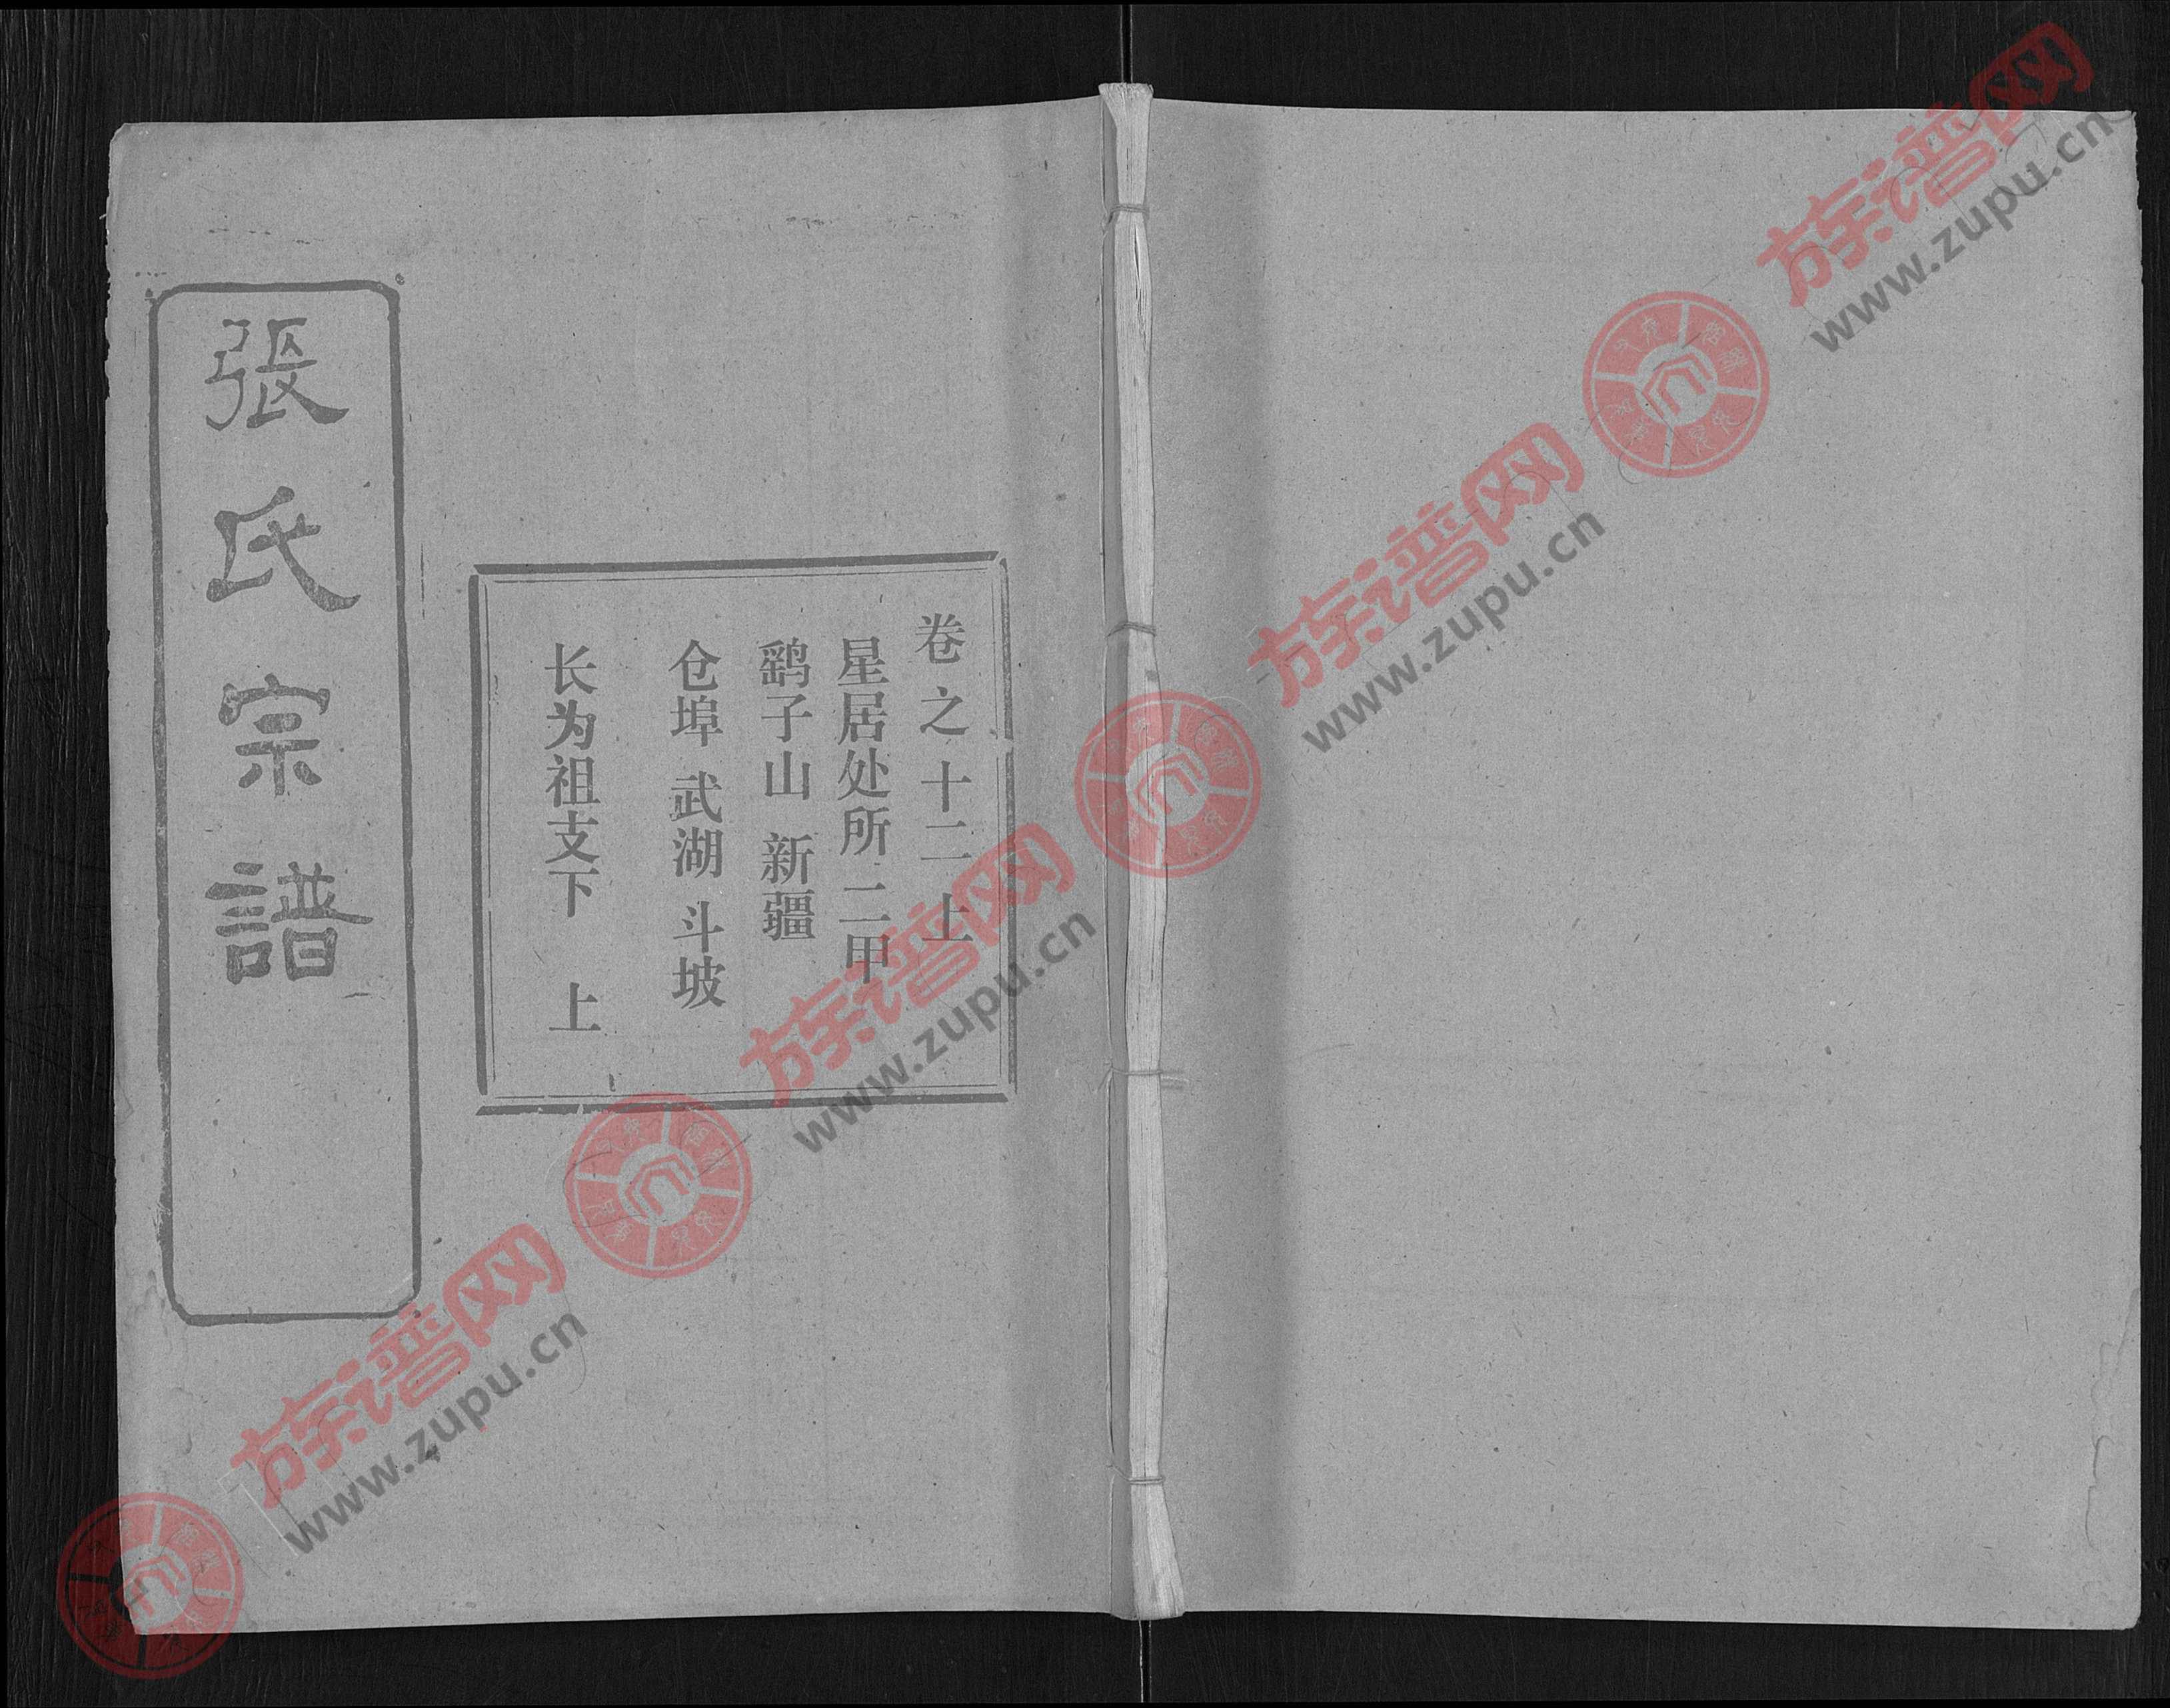 張氏宗譜
卷之十二上
星居处所二甲
鹞子山 新疆
仓埠 武湖 斗坡
长为祖支下 上
族谱网
www.zupu.cn
族谱网
www.zupu.cn
族谱网
www.zupu.cn
族谱网
www.zupu.cn